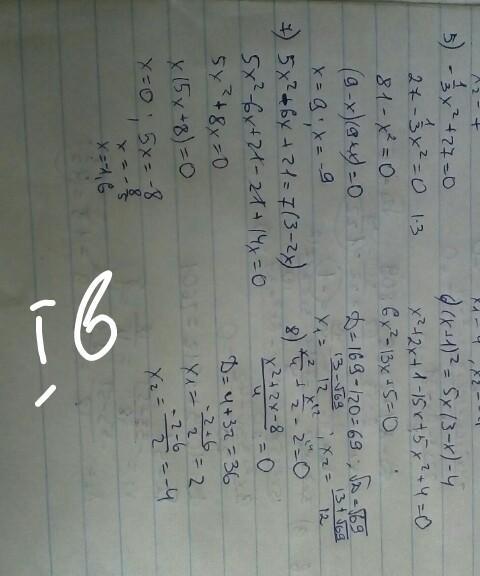 x₂ = -7
5) -1/3x² + 27 = 0
27 - 1/3x² = 0 |·3
81 - x² = 0
(9 - x)(9 + x) = 0
x = 9; x = -9
7) 5x² - 6x + 21 = 7(3 - 2x)
5x² - 6x + 21 - 21 + 14x = 0
5x² + 8x = 0
x(5x + 8) = 0
x = 0; 5x = -8
x = -8/5
x = -1,6
x₁ = 4, x₂ = -4
6) (x+1)² = 5x(3-x) - 4
x² + 2x + 1 - 15x + 5x² + 4 = 0
6x² - 13x + 5 = 0
D = 169 - 120 = 69; √D = √69
x₁ = (13 - √69)/12; x₂ = (13 + √69)/12
8) x²/4 + x/2 - 2 = 0
(x² + 2x - 8)/4 = 0
D = 4 + 32 = 36
x₁ = (-2+6)/2 = 2
x₂ = (-2-6)/2 = -4
I в